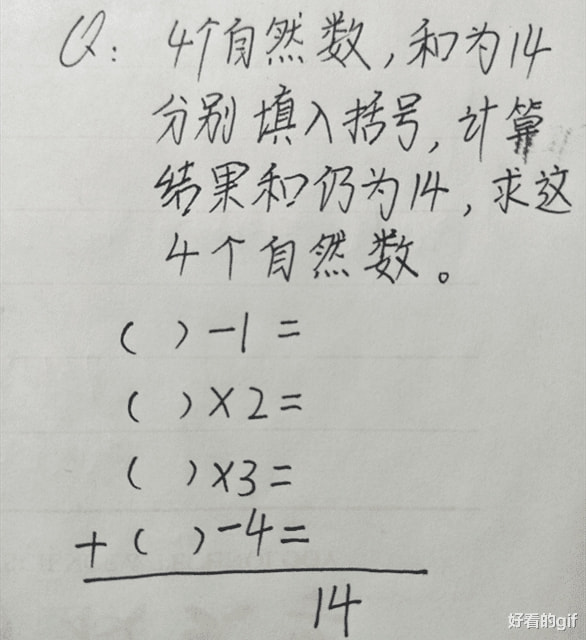 Q: 4个自然数,和为14
分别填入括号,计算
结果和仍为14,求这
4个自然数。
( )-1=
( )×2=
( )×3=
+( )-4=
14
好看的gif